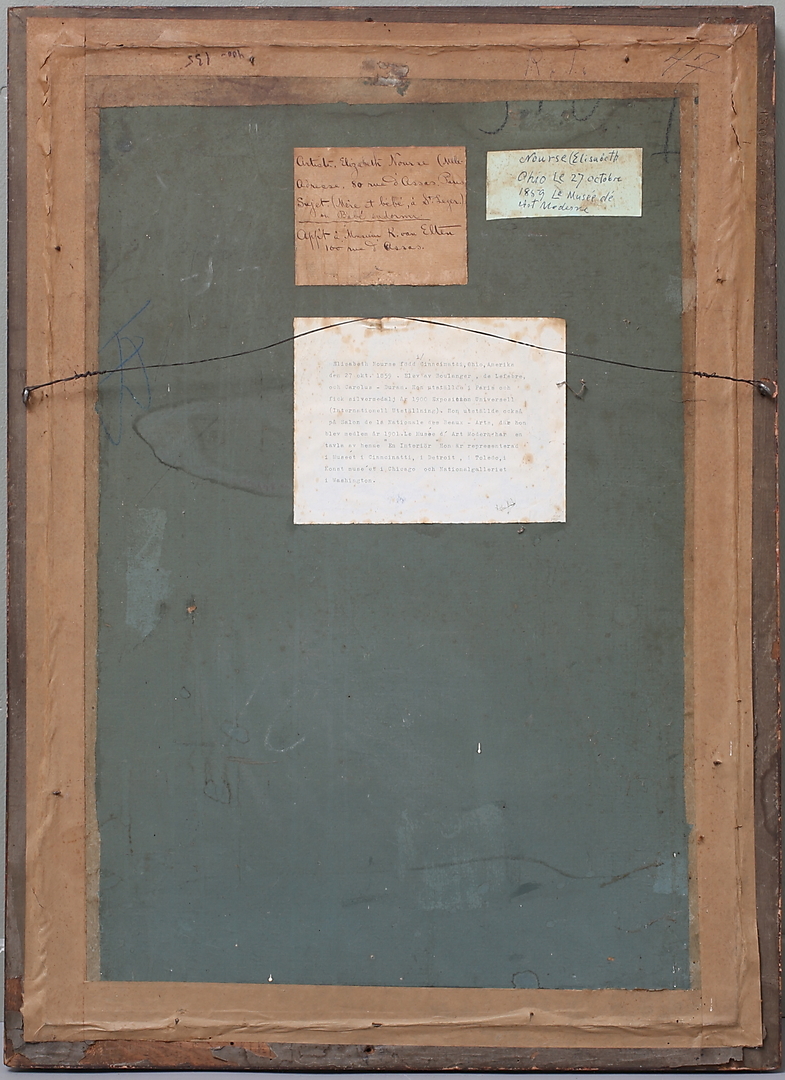 Artiste, Elizabeth Nourse (Mlle
Adresse, 80 rue d'Assas, Paris
Sujet (Mère et bébé, à St Leger)
ou Bébé endormi
App't à Madame K. van Elten
100 rue d'Assas.
Nourse (Elisabeth
Ohio Le 27 octobre
1859 Le Musée de
Art Moderne
Elisabeth Nourse född Cincinnati, Ohio, Amerika
den 27 okt. 1859. Elev av Boulanger, de Lefebre,
och Carolus - Duran. Hon utställde i Paris och
fick silvermedalj år 1900 Exposition Universell
(Internationell Utställning). Hon utställde också
på Salon de la Nationale des Beaux - Arts, där hon
blev medlem år 1901. Le Musée d' Art Moderne har en
tavla av henne "En Interiör" Hon är representerad
i Museet i Cincinatti, i Detroit, i Toledo, i
Konst museet i Chicago och Nationalgalleriet
i Washington.